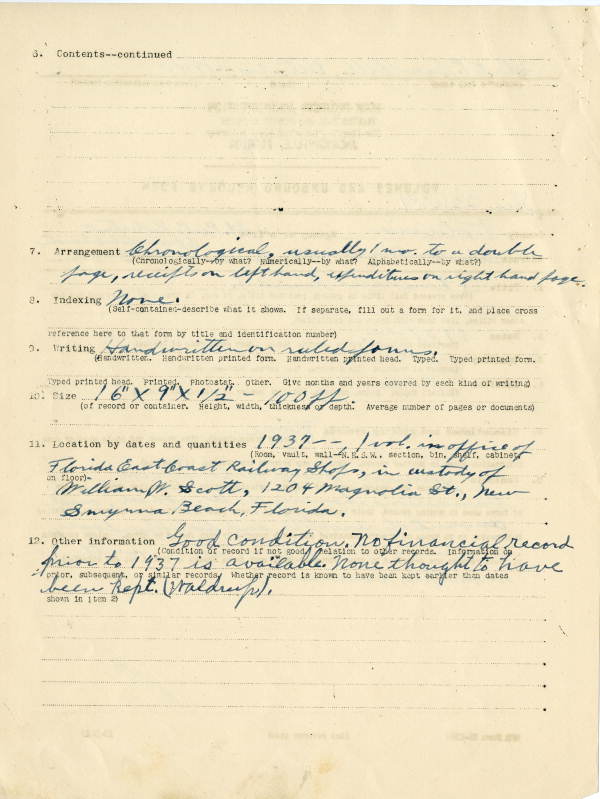 6. Contents--continued
7. Arrangement Chronological, usually 1 mo. to a double
(Chronologically--by what? Numerically--by what? Alphabetically--by what?)
page, reciepts on left hand, expenditures on right hand page.
8. Indexing None.
(Self-contained-describe what it shows. If separate, fill out a form for it, and place cross
reference here to that form by title and identification number)
9. Writing Handwritten on ruled forms.
(Handwritten. Handwritten printed form. Handwritten printed head. Typed. Typed printed form.
Typed printed head. Printed. Photostat. Other. Give months and years covered by each kind of writing)
10. Size 16" X 9" X 1/2" - 100 ff.
(of record or container. Height, width, thickness or depth. Average number of pages or documents)
11. Location by dates and quantities 1937--, 1 vol. in office of
(Room, vault, wall--N.E.S.W., section, bin, shelf, cabinet,
Florida East Coast Railway Shops, in custody of
on floor)-
William W. Scott, 1204 Magnolia St., New
Smyrna Beach, Florida.
12. Other information Good condition. No financial record
(Condition of record if not good. Relation to other records. Information on
prior to 1937 is available. None thought to have
prior, subsequent, or similar records. Whether record is known to have been kept earlier than dates
been kept. (Waldrup).
shown in item 2)